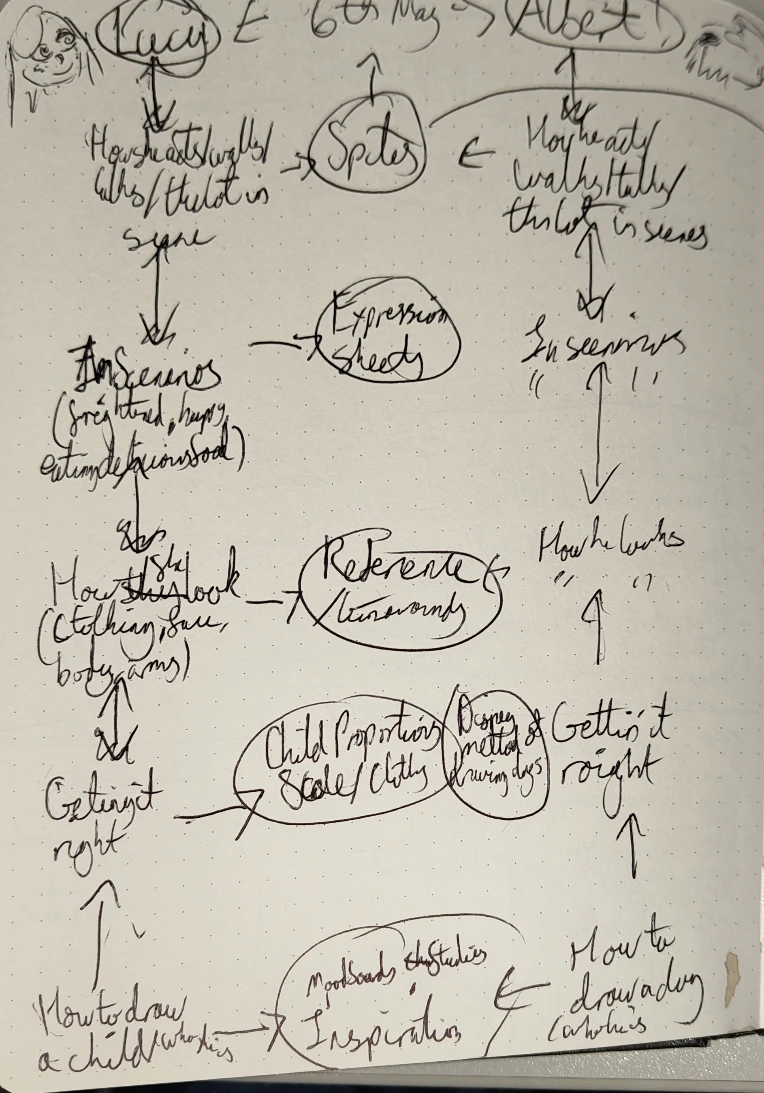 Lucy ← 6th May → Albert!
How she acts/walks/
talks/the lot in
scene
Spites
How he acts/
walks/talks/
the lot in scenes
In Scenerios
(frightened, happy,
eating delicious food)
Expression
Sheets
In seenirios
" "
How she look
(Clothing, face,
body, arms)
Reference
/turnarounds
How he looks
" "
Getting it
right
Child Proportions
Scale/Clothes
Disney
method of
drawing dogs
Getting it
right
How to draw
a child/who
Moodboards studies
Inspiration
How to
draw a dog